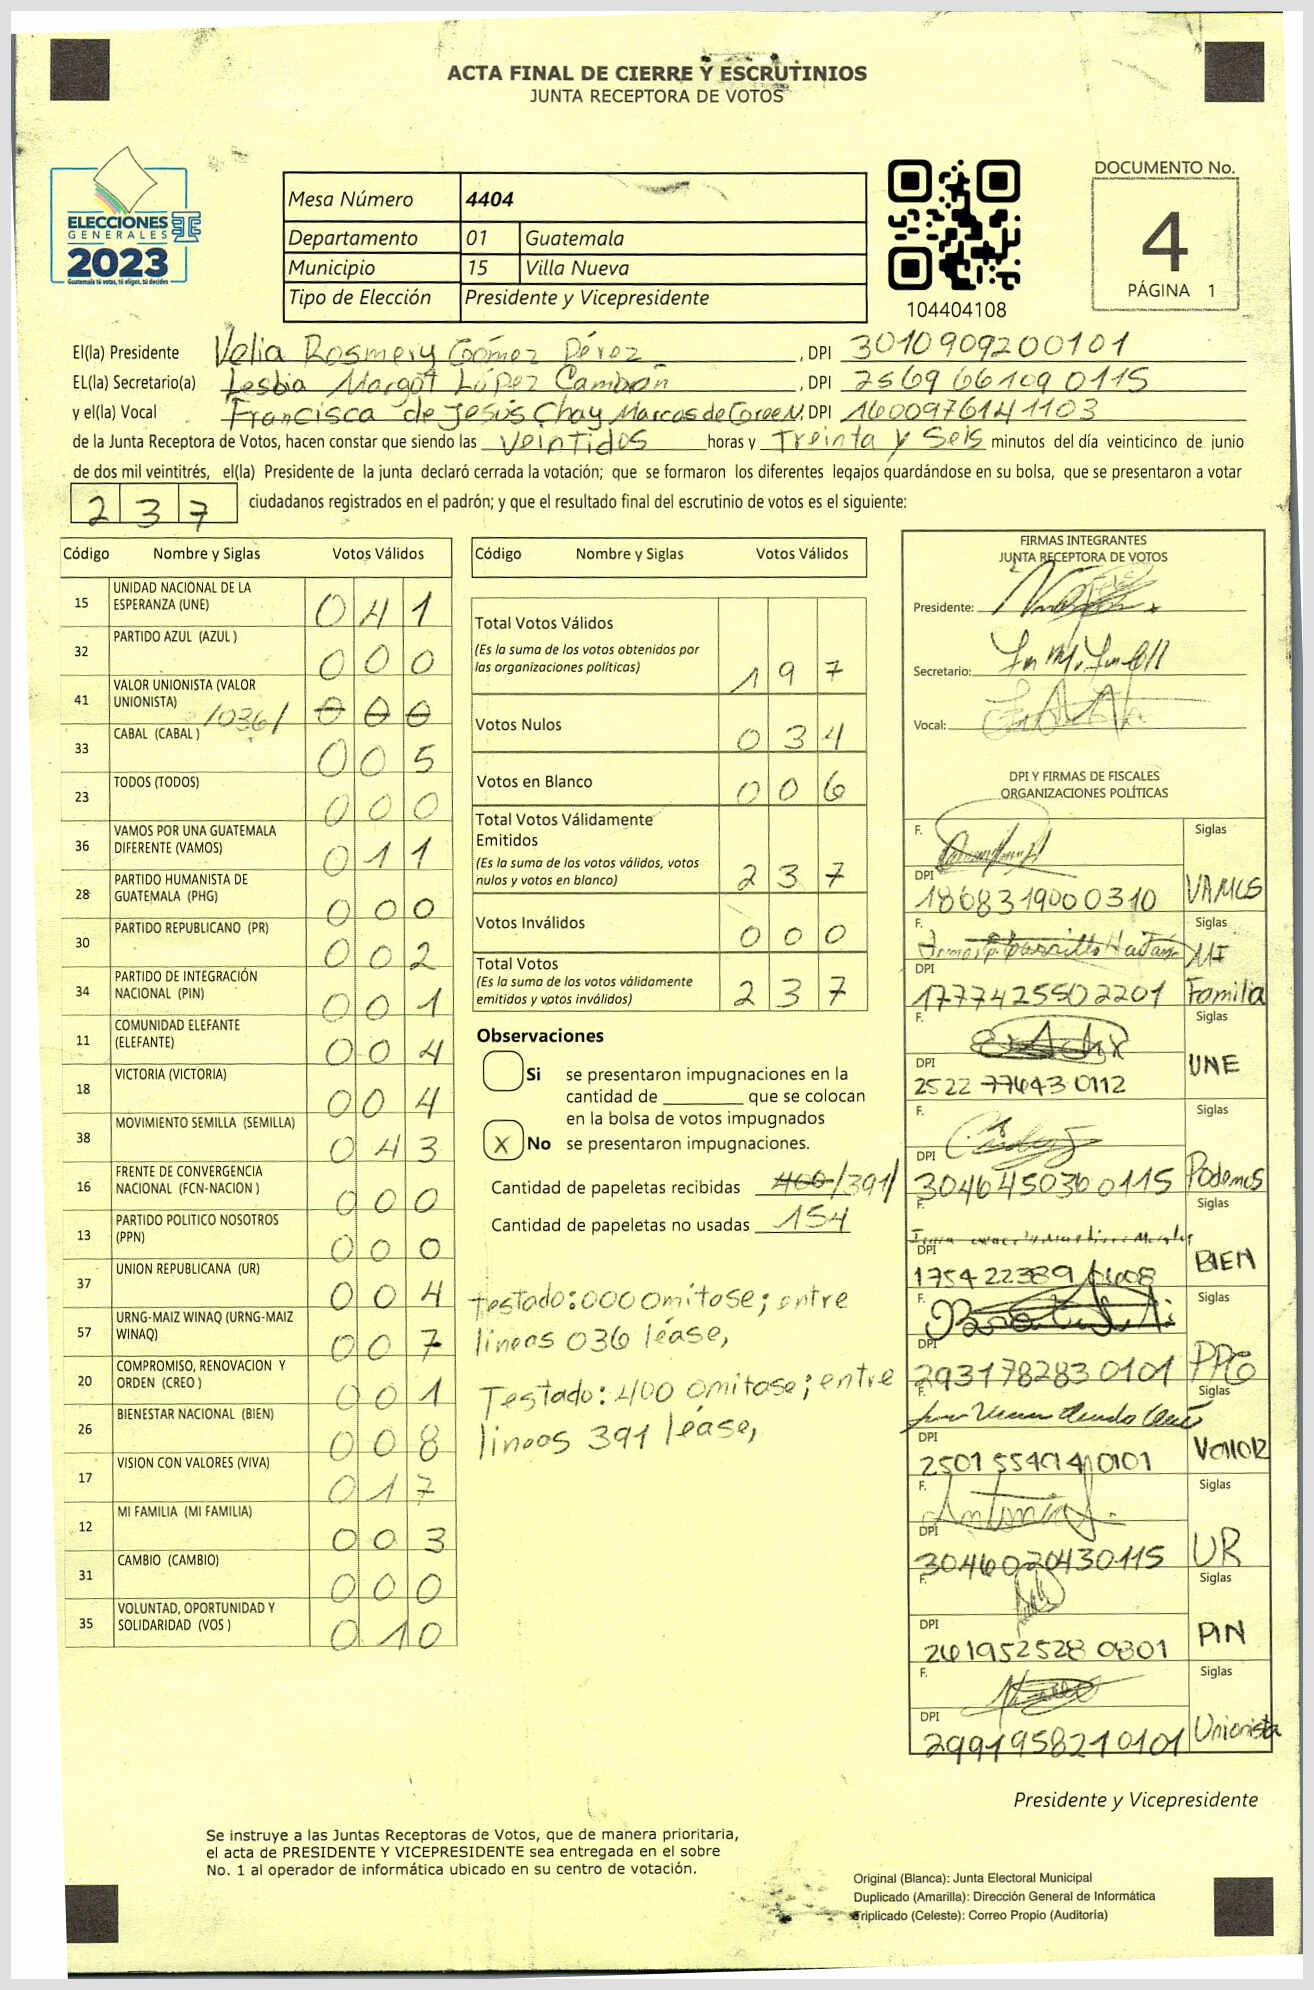 ACTA FINAL DE CIERRE Y ESCRUTINIOS
JUNTA RECEPTORA DE VOTOS
ELECCIONES
GENERALES
2023
Guatemala tú votas, tú eliges, tú decides
Mesa Número 4404
Departamento 01 Guatemala
Municipio 15 Villa Nueva
Tipo de Elección Presidente y Vicepresidente
104404108
DOCUMENTO No.
4
PÁGINA 1
El(la) Presidente Velia Rosmery Gómez Pérez, DPI 3010909200101
EL(la) Secretario(a) Lesbia Margot López Cambrán, DPI 2569661090115
y el(la) Vocal Francisca de Jesús Chay Marcos de DPI 1600976141103
de la Junta Receptora de Votos, hacen constar que siendo las veintidos horas y Treinta y Seis minutos del día veinticinco de junio
de dos mil veintitrés, el(la) Presidente de la junta declaró cerrada la votación; que se formaron los diferentes legajos guardándose en su bolsa, que se presentaron a votar
237 ciudadanos registrados en el padrón; y que el resultado final del escrutinio de votos es el siguiente:
Código Nombre y Siglas Votos Válidos
15 UNIDAD NACIONAL DE LA ESPERANZA (UNE) 041
32 PARTIDO AZUL (AZUL ) 000
41 VALOR UNIONISTA (VALOR UNIONISTA) /036/ 000
33 CABAL (CABAL ) 005
23 TODOS (TODOS) 000
36 VAMOS POR UNA GUATEMALA DIFERENTE (VAMOS) 011
28 PARTIDO HUMANISTA DE GUATEMALA (PHG) 000
30 PARTIDO REPUBLICANO (PR) 002
34 PARTIDO DE INTEGRACIÓN NACIONAL (PIN) 001
11 COMUNIDAD ELEFANTE (ELEFANTE) 004
18 VICTORIA (VICTORIA) 004
38 MOVIMIENTO SEMILLA (SEMILLA) 043
16 FRENTE DE CONVERGENCIA NACIONAL (FCN-NACION ) 000
13 PARTIDO POLITICO NOSOTROS (PPN) 000
37 UNION REPUBLICANA (UR) 004
57 URNG-MAIZ WINAQ (URNG-MAIZ WINAQ) 007
20 COMPROMISO, RENOVACION Y ORDEN (CREO ) 001
26 BIENESTAR NACIONAL (BIEN) 008
17 VISION CON VALORES (VIVA) 017
12 MI FAMILIA (MI FAMILIA) 003
31 CAMBIO (CAMBIO) 000
35 VOLUNTAD, OPORTUNIDAD Y SOLIDARIDAD (VOS ) 010
Código Nombre y Siglas Votos Válidos
Total Votos Válidos
(Es la suma de los votos obtenidos por
las organizaciones políticas) 197
Votos Nulos 034
Votos en Blanco 006
Total Votos Válidamente
Emitidos
(Es la suma de los votos válidos, votos
nulos y votos en blanco) 237
Votos Inválidos 000
Total Votos
(Es la suma de los votos válidamente
emitidos y votos inválidos) 237
Observaciones
Si se presentaron impugnaciones en la
cantidad de ________ que se colocan
en la bolsa de votos impugnados
X No se presentaron impugnaciones.
Cantidad de papeletas recibidas 400/391/
Cantidad de papeletas no usadas 154
Testado: 000 Omitase; entre
lineas 036 léase,
Testado: 400 Omitase; entre
lineas 391 léase,
FIRMAS INTEGRANTES
JUNTA RECEPTORA DE VOTOS
Presidente:
Secretario:
Vocal:
DPI Y FIRMAS DE FISCALES
ORGANIZACIONES POLÍTICAS
F. Siglas
DPI 1868319000310 VAMOS
F. Siglas
DPI 1777425502201 MI Familia
F. Siglas
DPI 2522 77643 0112 UNE
F. Siglas
DPI 3046450360115 Podemos
F. Siglas
DPI 1754 22389 BIEN
F. Siglas
DPI 293178283 0101
F. Siglas
DPI 2501 55494 0101 VALOR
F. Antonia Siglas
DPI 3046020430115 UR
F. Siglas
DPI 261952528 0801 PIN
F. Siglas
DPI 2991958210101 Unionista
Presidente y Vicepresidente
Se instruye a las Juntas Receptoras de Votos, que de manera prioritaria,
el acta de PRESIDENTE Y VICEPRESIDENTE sea entregada en el sobre
No. 1 al operador de informática ubicado en su centro de votación.
Original (Blanca): Junta Electoral Municipal
Duplicado (Amarilla): Dirección General de Informática
Triplicado (Celeste): Correo Propio (Auditoría)